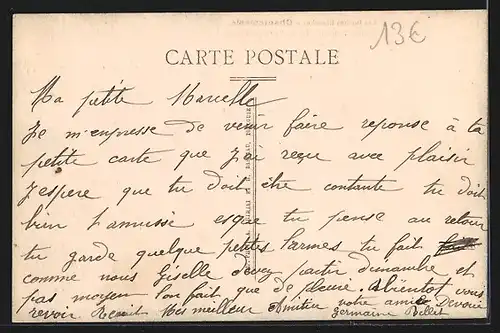 13€
CARTE POSTALE
Ma petite Marcelle
Je m'enpresse de venir faire reponse à ta
petite carte que j'ai reçu avec plaisir
J'espere que tu doit être contante tu doit
bien t'amusse esque tu pense au retour
tu garde quelque petites larmes tu fait
comme nous Giselle devez partir dimanche et
pas moyen l'on fait que de pleure. Abientot vous
revoir Recoit Mes meilleur Amitier votre amie Devoué
Germaine